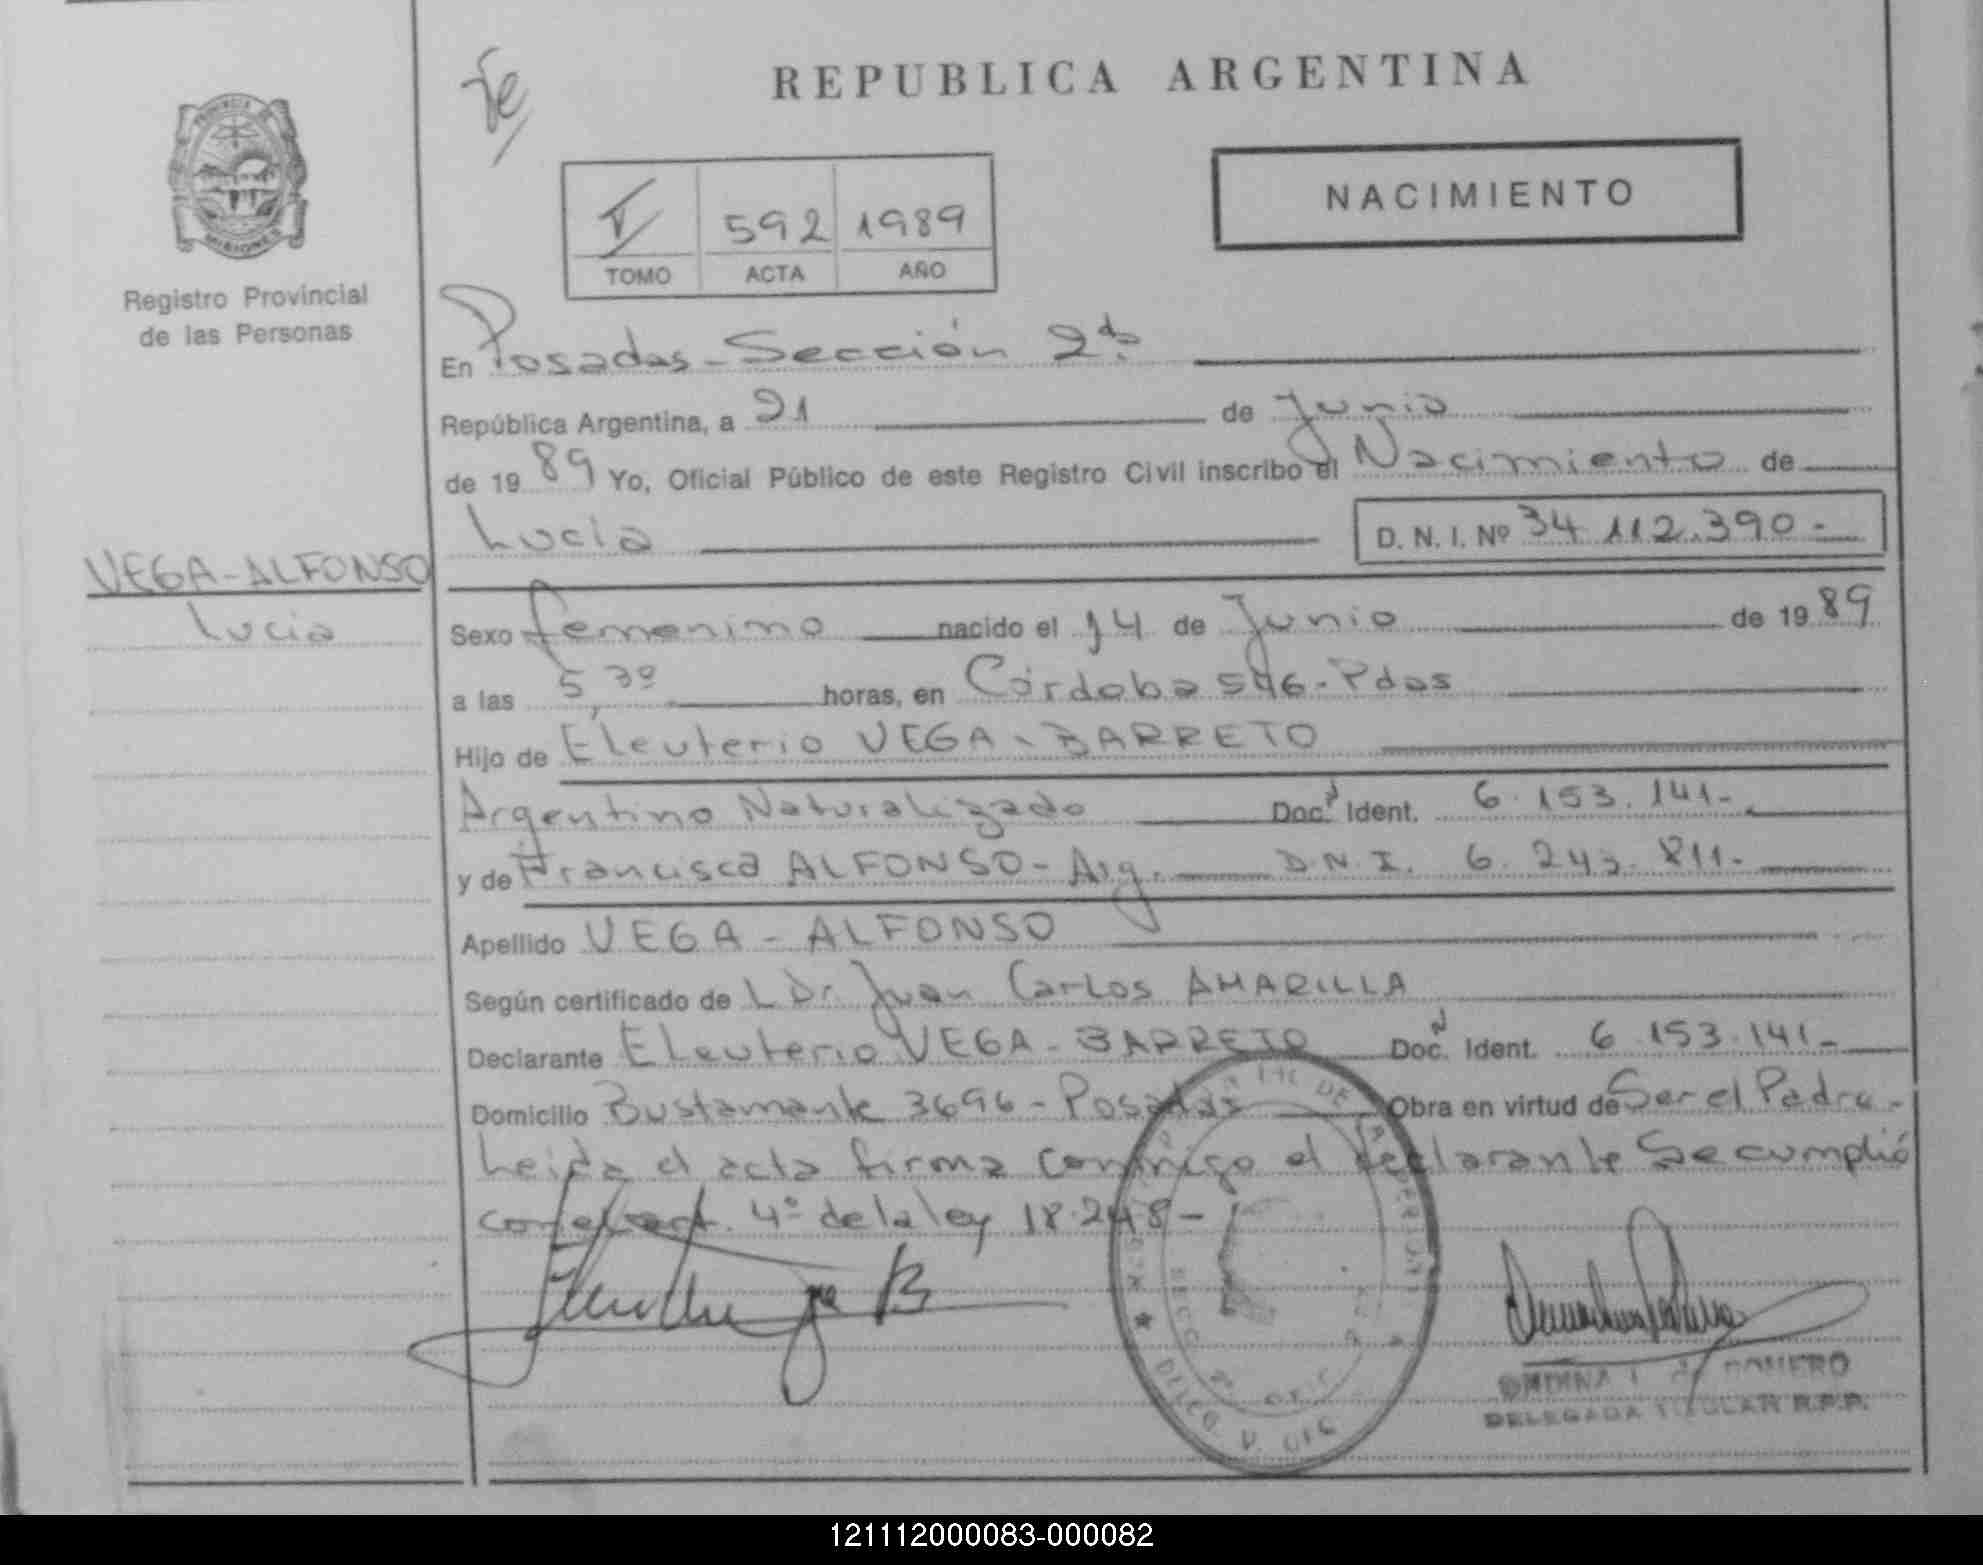 Fe
REPUBLICA ARGENTINA
NACIMIENTO
V 592 1989
TOMO ACTA AÑO
PROVINCIA DE MISIONES
Registro Provincial
de las Personas
En Posadas - Sección 2da
República Argentina, a 21 de Junio
de 1989 Yo, Oficial Público de este Registro Civil inscribo el Nacimiento de
Lucia D. N. I. Nº 34.112.390.-
VEGA-ALFONSO
Lucia
Sexo femenino nacido el 14 de Junio de 1989
a las 5,30 horas, en Córdoba 546-Pdas
Hijo de Eleuterio VEGA - BARRETO
Argentino Naturalizado Doc. Ident. 6.153.141-
y de Francisca ALFONSO- Arg. D.N.I. 6.243.811-
Apellido VEGA - ALFONSO
Según certificado de L Dr. Juan Carlos AMARILLA
Declarante Eleuterio VEGA - BARRETO Doc. Ident. 6.153.141-
Domicilio Bustamante 3696 - Posadas Obra en virtud de Ser el Padre-
Leida el acta firma conmigo el declarante Se cumplió
con el art. 4º de la ley 18.248-
ROMERO
DELEGADA TITULAR R.P.P.
121112000083-000082